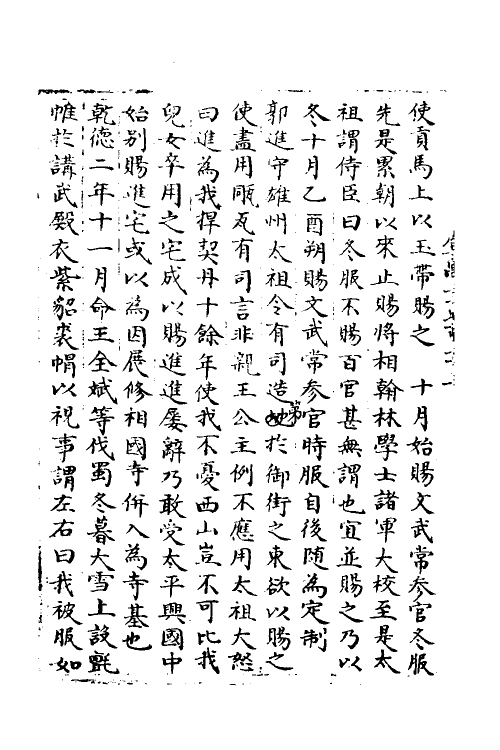 使貢馬上以玉帶賜之　十月始賜文武常参官冬服
先是累朝以來止賜將相翰林學士諸軍大校至是太
祖謂侍臣曰冬服不賜百官甚無謂也宜並賜之乃以
冬十月乙酉朔賜文武常参官時服自後随為定制
郭進守雄州太祖令有司造第於御街之東欲以賜之
使盡用瓦有司言非親王公主例不應用太祖大怒
曰進為我捍契丹十餘年使我不憂西山豈不可比我
兒女卒用之宅成以賜進進屢辭乃敢受太平興國中
始别賜進宅或以為因展修相國寺併入為寺基也
乾德二年十一月命王全斌等伐蜀冬暮大雪上設氊
帷於講武殿衣紫貂裘帽以視事謂左右曰我被服如